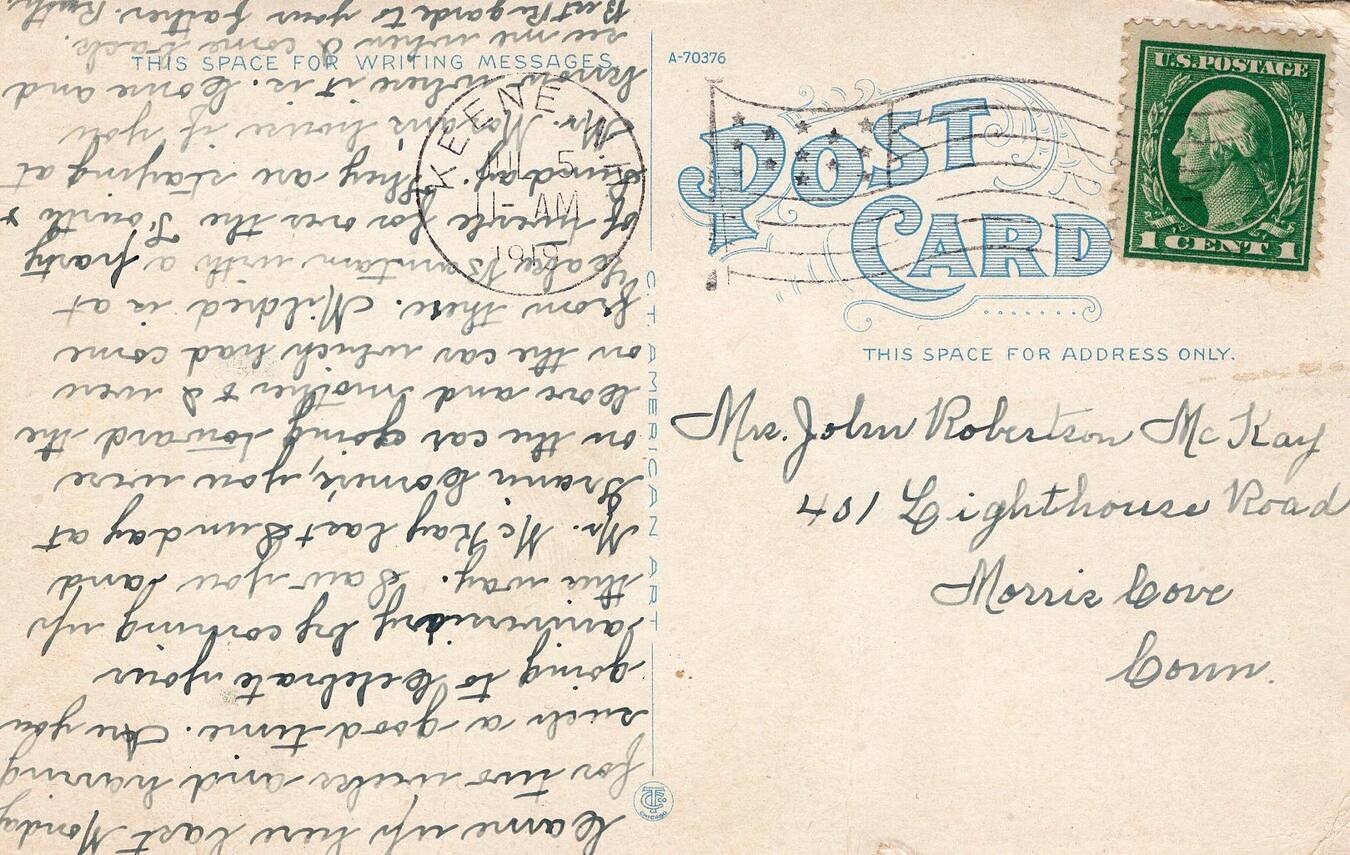 THIS SPACE FOR WRITING MESSAGES
A-70376
POST
CARD
THIS SPACE FOR ADDRESS ONLY.
U.S. POSTAGE
1 CENT 1
KEENE N.H.
JUL 5
11-AM
C.T. AMERICAN ART
CHICAGO
Mrs. John Robertson McKay
401 Lighthouse Road
Morris Cove
Conn.
Came up here last Monday
for two weeks and having
such a good time. Are you
going to celebrate your
aniversary by coming up
this way. Saw you and
Mr. McKay last Sunday at
Grann Corner, you were
on the car going toward the
Cove and mother & I were
on the car which had come
from there. Mildred is at
Lake with a party
of twelve for over the Fourth &
Sunday. They are staying at
Mr. house if you
know where it is. Come and
see me when I come back.
Best Regards to your father. Ruth.